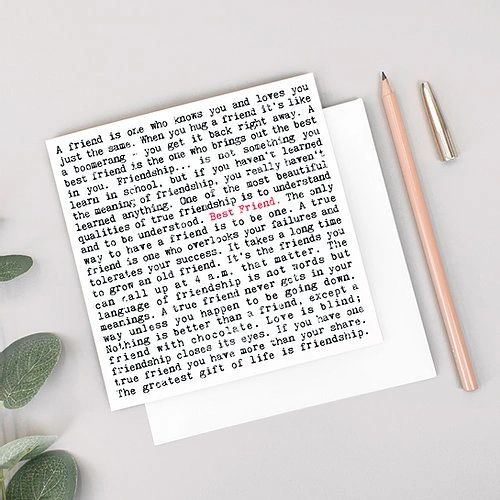 A friend is one who knows you and loves you
just the same. When you hug a friend it's like
a boomerang - you get it back right away. A
best friend is the one who brings out the best
in you. Friendship... is not something you
learn in school, but if you haven't learned
the meaning of friendship, you really haven't
learned anything. One of the most beautiful
qualities of true friendship is to understand
and to be understood. Best Friend. The only
way to have a friend is to be one. A true
friend is one who overlooks your failures and
tolerates your success. It takes a long time
to grow an old friend. It's the friends you
can call up at 4 a.m. that matter. The
language of friendship is not words but
meanings. A true friend never gets in your
way unless you happen to be going down.
Nothing is better than a friend, except a
friend with chocolate. Love is blind;
friendship closes its eyes. If you have one
true friend you have more than your share.
The greatest gift of life is friendship.